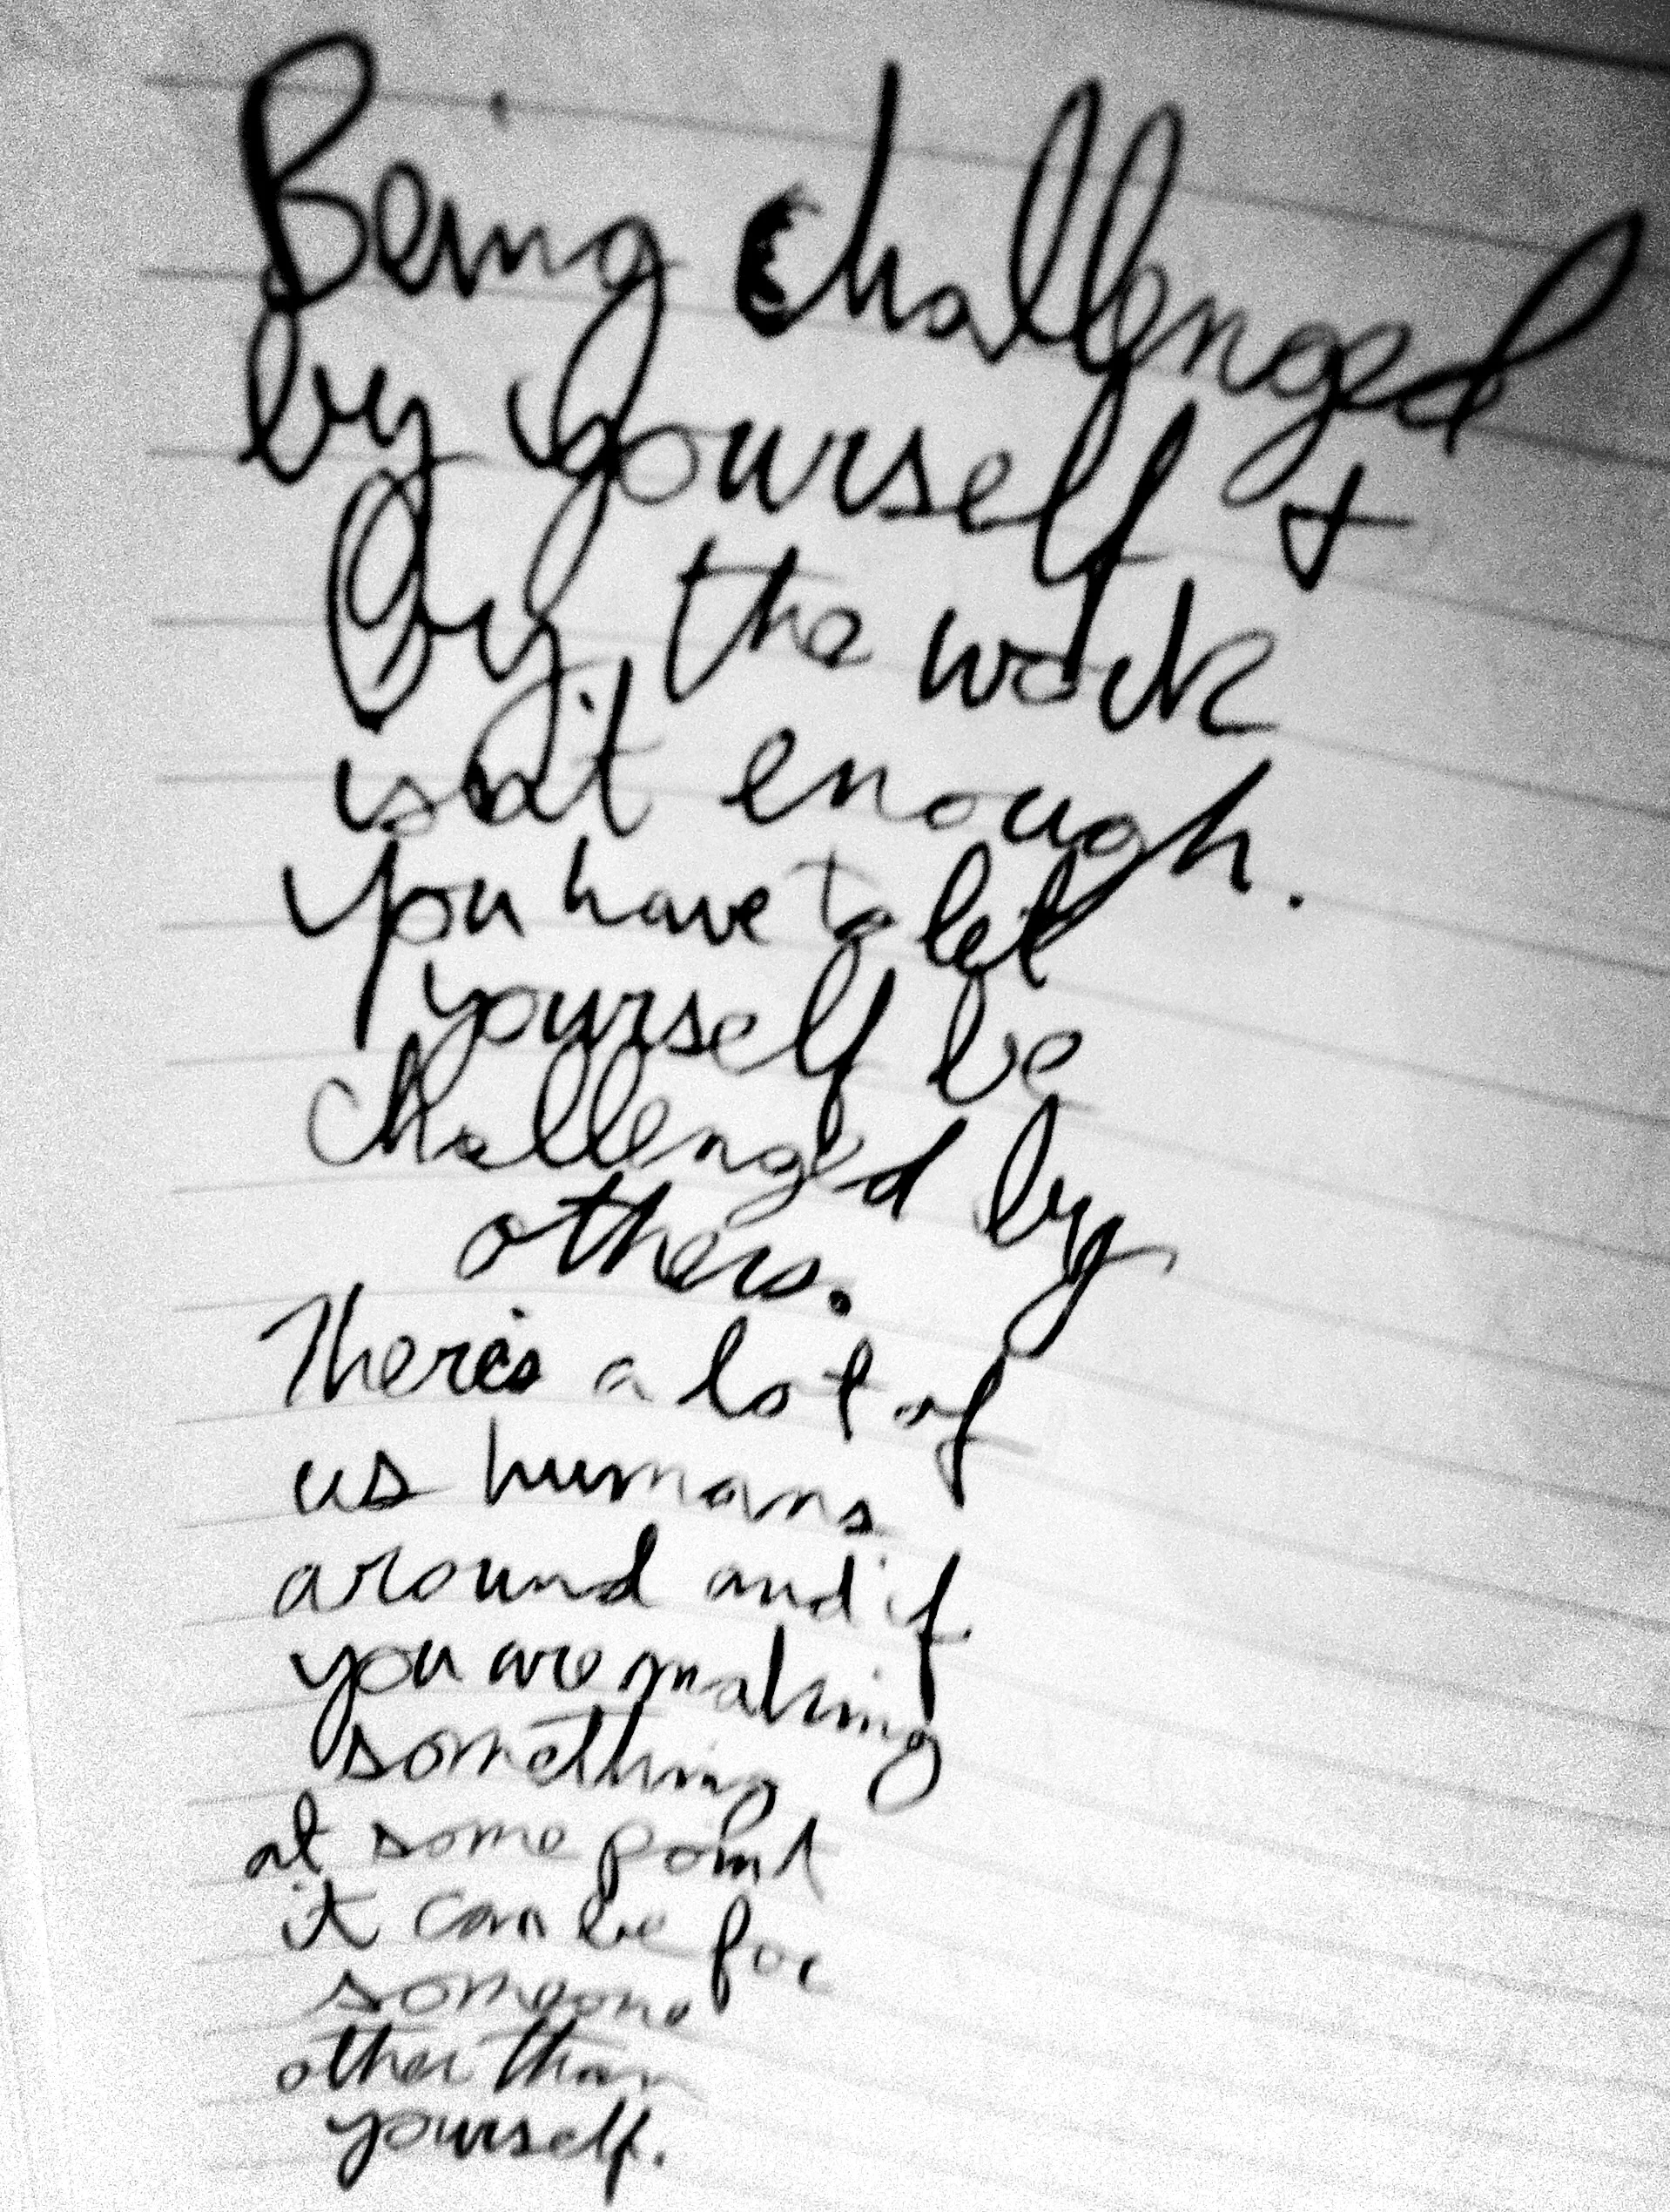 Being challenged
by yourself +
by the work
isn't enough.
You have to let
yourself be
challenged by
others.
There's a lot of
us humans
around and if
you are making
something
at some point
it can be for
someone
other than
yourself.